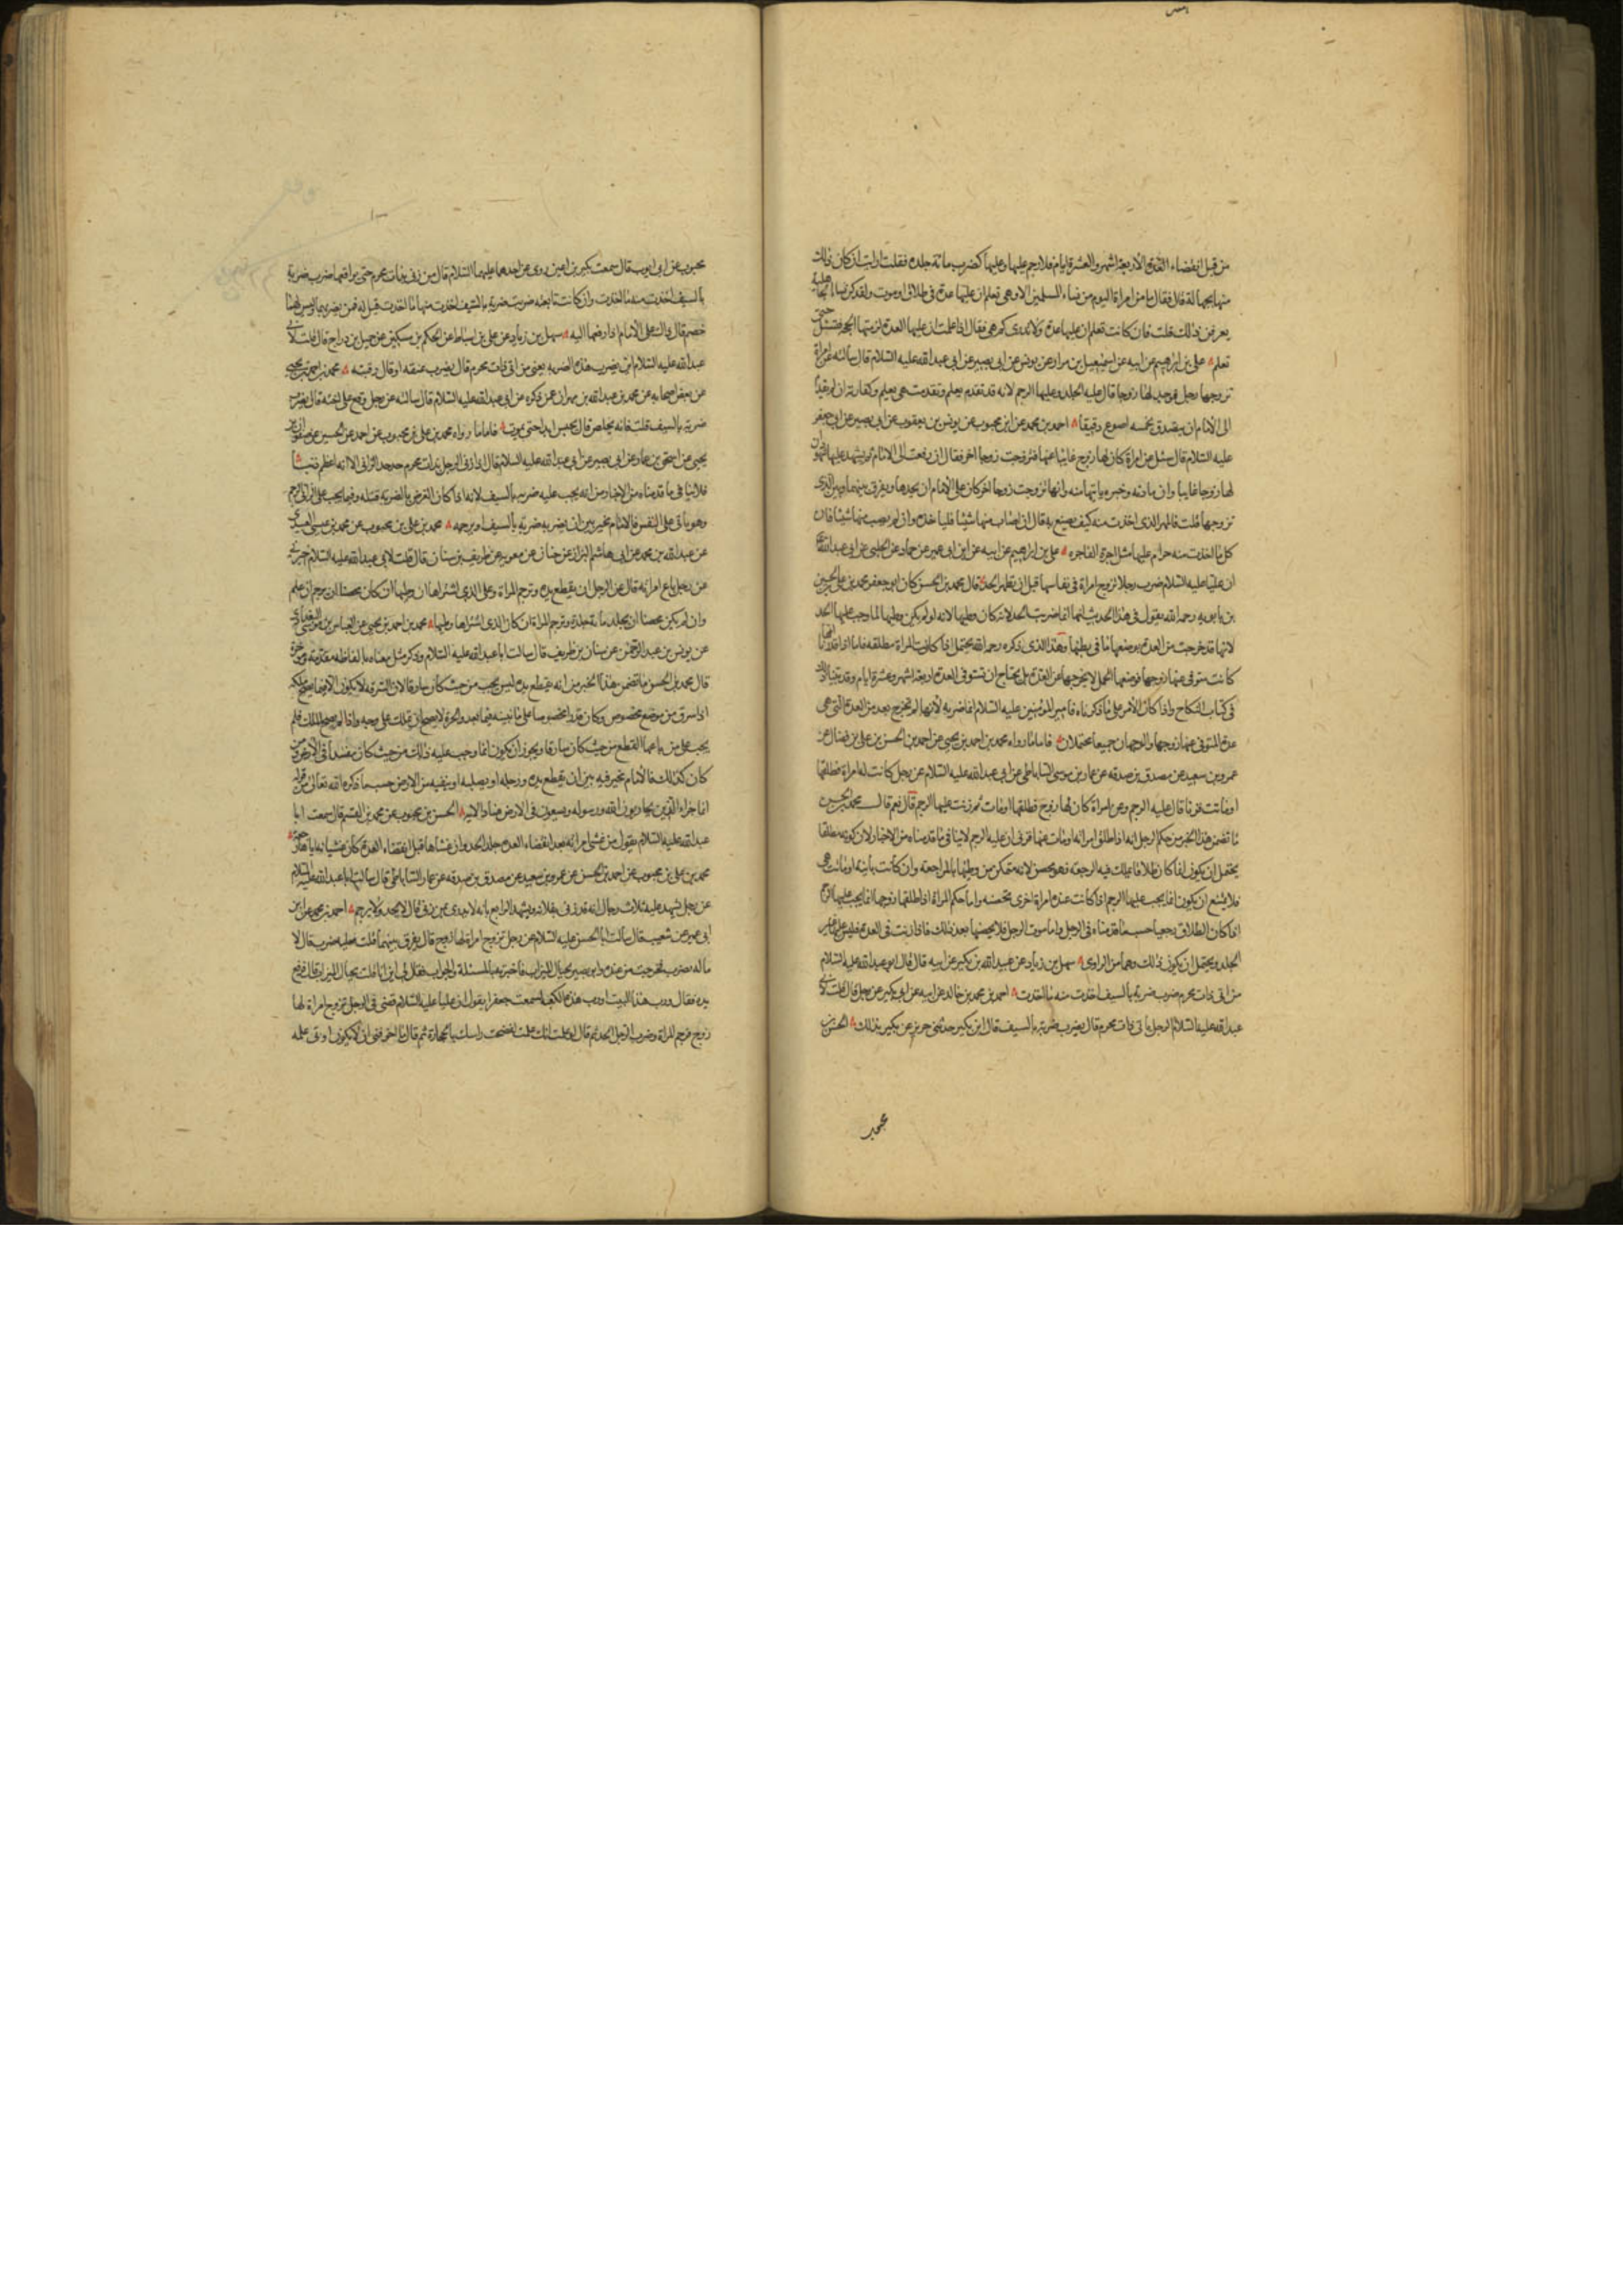 من قبل انقضاء العدة الاربعة اشهر والعشرة ايام فلا رجم عليها وعليها كضرب مائة جلدة فقلت ارايت ان كان ذلك
منها بجهالة قال فقال ما من امراة اليوم من نساء المسلمين الا وهي تعلم ان عليها عدة في طلاق او موت ولقد كن نساء الجاهلية
يعرفن ذلك قلت فان كانت تعلم ان عليها عدة ولا تدري كم هي فقال اذا علمت ان عليها العدة لزمتها الحجة فتسئل حتى
تعلم علي بن ابراهيم عن ابيه عن اسمعيل بن مرار عن يونس عن ابي بصير عن ابي عبد الله عليه السلام قال سالته عن امراة
تزوجها رجل فوجد لها زوجا قال عليه الجلد وعليها الرجم لانه قد تقدم بعلم وتقدمت هي بعلم وكفارته ان لم يقدم
الى الامام ان يتصدق بخمسة اصوع دقيقا احمد بن محمد عن ابن محبوب عن يونس بن يعقوب عن ابي بصير عن ابي جعفر
عليه السلام قال سئل عن امراة كان لها زوج غايبا عنها فتزوجت زوجا اخر فقال ان رفعت الى الامام ثم يشهد عليها شهود ان
لها زوجا غايبا وان مادته وخبره ياتيها منه وانها تزوجت زوجا اخر كان على الامام ان يحدها ويفرق بينها وبين الذي
تزوجها قلت فالمهر الذي اخذت منه كيف يصنع به قال ان اصاب منها شيئا فلياخذه وان لم يصب منها شيئا فان
كل ما اخذت منه حرام عليها مثل اجرة الفاجرة علي بن ابرهيم عن ابيه عن ابن ابي عمير عن حماد عن الحلبي عن ابي عبد الله ع
ان عليا عليه السلام ضرب رجلا تزوج امراة في نفاسها قبل ان تطهر الحد قال محمد بن الحسن كان ابو جعفر محمد بن علي بن الحسين
بن بابويه رحمه الله يقول في هذا الحديث انما ضربه الحد لانه كان وطيها لانه لو لم يكن وطيها لما وجب عليها الحد
لانها قد خرجت من العدة بوضعها ما في بطنها وهذا الذي ذكره رحمه الله يحتمل اذا كانت المراة مطلقة فاما اذا قدرنا انها
كانت متوفى عنها زوجها فوضعها الحمل لا يخرجها عن العدة بل يحتاج ان تستوفي العدة اربعة اشهر وعشرة ايام وقد بينا ذلك
في كتاب النكاح واذا كان الامر على ما ذكرناه فامير المؤمنين عليه السلام انما ضربه لانها لم تخرج بعد من العدة التي هي
عدة المتوفى عنها زوجها والوجهان جميعا محتملان فاما ما رواه محمد بن احمد بن يحيى عن احمد بن الحسن بن علي بن فضال عن
عمرو بن سعيد عن مصدق بن صدقه عن عمار بن موسى الساباطي عن ابي عبد الله عليه السلام عن رجل كانت له امراة فطلقها
او ماتت فزنا قال عليه الرجم وعن امراة كان لها زوج فطلقها او مات ثم زنت عليها الرجم قال نعم قال محمد بن الحسن
ما تضمن هذا الخبر من حكم الرجل انه اذا طلق امراته او ماتت عنها فزنى ان عليه الرجم لا ينافي ما قدمناه من الاخبار لان كونه مطلقا
يحتمل ان يكون اذا كان طلاقا يملك فيه الرجعة فهو محصن لانه متمكن من وطيها بالمراجعة وان كانت بائنة او ماتت هي
فلا يمتنع ان يكون انما يجب عليه الرجم اذا كانت عنده امراة اخرى تحصنه واما حكم المراة اذا طلقها زوجها انما يجب عليها الرجم
اذا كان الطلاق رجعيا حسب ما قدمناه في الرجل واما موت الرجل فلا يحصنها بعد ذلك فاذا زنت في العدة فليس عليها غير
الجلد ويحتمل ان يكون ذلك وهما من الراوي سهل بن زياد عن عبد الله بن بكير عن ابيه قال قال ابو عبد الله عليه السلام
من اتى ذات محرم ضرب ضربة بالسيف اخذت منه ما اخذت احمد بن محمد بن خالد عن ابيه عن ابن بكير عن رجل قال قلت لابي
عبد الله عليه السلام الرجل ياتي ذات محرم قال يضرب ضربة بالسيف قال ابن بكير حدثني حريز عن بكير بذلك الحسن بن
محبوب
محبوب عن ابي ايوب قال سمعت بكير بن اعين روى عن احدهما عليهما السلام قال من زنى بذات محرم حتى يواقعها ضرب ضربة
بالسيف اخذت منه ما اخذت وان كانت تابعته ضربت ضربة بالسيف اخذت منها ما اخذت قيل له فمن يضربهما وليس لهما
خصم قال ذلك على الامام اذا رفعا اليه سهل بن زياد عن علي بن اسباط عن الحكم بن مسكين عن جميل بن دراج قال قلت لابي
عبد الله عليه السلام اين يضرب هذه الضربة يعني من اتى ذات محرم قال يضرب عنقه او قال رقبته محمد بن احمد بن يحيى
عن بعض اصحابه عن محمد بن عبد الله بن مهران عمن ذكره عن ابي عبد الله عليه السلام قال سالته عن رجل وقع على اخته قال يضرب
ضربة بالسيف قلت فانه يخلص قال يحبس ابدا حتى يموت فاما ما رواه محمد بن علي بن محبوب عن احمد عن الحسين عن صفوان بن
يحيى عن اسحق بن عمار عن ابي بصير عن ابي عبد الله عليه السلام قال اذا زنى الرجل بذات محرم حد حد الزاني الا انه اعظم ذنبا
فلا ينافي ما قدمناه من الاخبار من انه يجب عليه ضربة بالسيف لانه اذا كان الغرض بالضربة قتله وفيما يجب على الزاني الرجم
وهو ياتي على النفس فالامام مخير بين ان يضربه ضربة بالسيف او يرجمه محمد بن علي بن محبوب عن محمد بن عيسى العبيدي
عن عبد الله بن محمد عن ابي هاشم البزاز عن حنان عن معوية عن طريف بن سنان قال قلت لابي عبد الله عليه السلام اخبرني
عن رجل باع امراته قال على الرجل ان يقطع يده وترجم المراة وعلى الذي اشتراها ان وطيها ان كان محصنا ان يرجم ان علم
وان لم يكن محصنا ان يجلد مائة جلدة وترجم المراة ان كان الذي اشتراها وطيها محمد بن احمد بن يحيى عن العباس بن موسى البغدادي
عن يونس بن عبد الرحمن عن سنان بن طريف قال سالت ابا عبد الله عليه السلام وذكر مثل معناه بالفاظه مقدمة ومؤخرة
قال محمد بن الحسن ما تضمن هذا الخبر من انه يقطع يده ليس يجب من حيث كان سارقا لان السرقة لا يكون الا فيما يصح ملكه
اذا سرق من موضع مخصوص وكان قدرا مخصوصا على ما نبينه فيما بعد والحرة لا يصح ان تملك على وجه واذا لم يصح الملك فلم
يجب على من باعها القطع من حيث كان سارقا ويجوز ان يكون انما وجب عليه ذلك من حيث كان مفسدا في الارض ومن
كان كذلك فالامام مخير فيه بين ان يقطع يده ورجله او يصلبه او ينفيه من الارض حسب ما ذكره الله تعالى في قوله
انما جزاء الذين يحاربون الله ورسوله ويسعون في الارض فسادا الاية الحسن بن محبوب عن محمد بن القسم قال سمعت ابا
عبد الله عليه السلام يقول من غشى امراته بعد انقضاء العدة جلد الحد وان غشاها قبل انقضاء العدة كان غشيانه اياها رجعة
محمد بن علي بن محبوب عن احمد بن الحسن عن عمرو بن سعيد عن مصدق بن صدقه عن عمار الساباطي قال سالت ابا عبد الله عليه السلام
عن رجل شهد عليه ثلاث رجال انه قد زنى بفلانة ويشهد الرابع بانه لا يدري بمن زنى قال لا يحد ولا يرجم احمد بن محمد عن ابن
ابي عمير عن شعيب قال سالت ابا الحسن عليه السلام عن رجل تزوج امراة لها زوج قال يفرق بينهما قلت فعليه ضرب قال لا
ما له يضرب فخرجت من عنده وابو بصير بحيال الميزاب فاخبرته بالمسئلة والجواب فقال لي اين انا قلت بحيال الميزاب قال فرفع
يده فقال ورب هذا البيت او رب هذه الكعبة لسمعت جعفرا يقول ان عليا عليه السلام قضى في الرجل تزوج امراة لها
زوج فرجم المراة وضرب الرجل الحد ثم قال لو علمت انك علمت لفضخت راسك بالحجارة ثم قال ما اخوفني ان لا يكون اوتي علمه